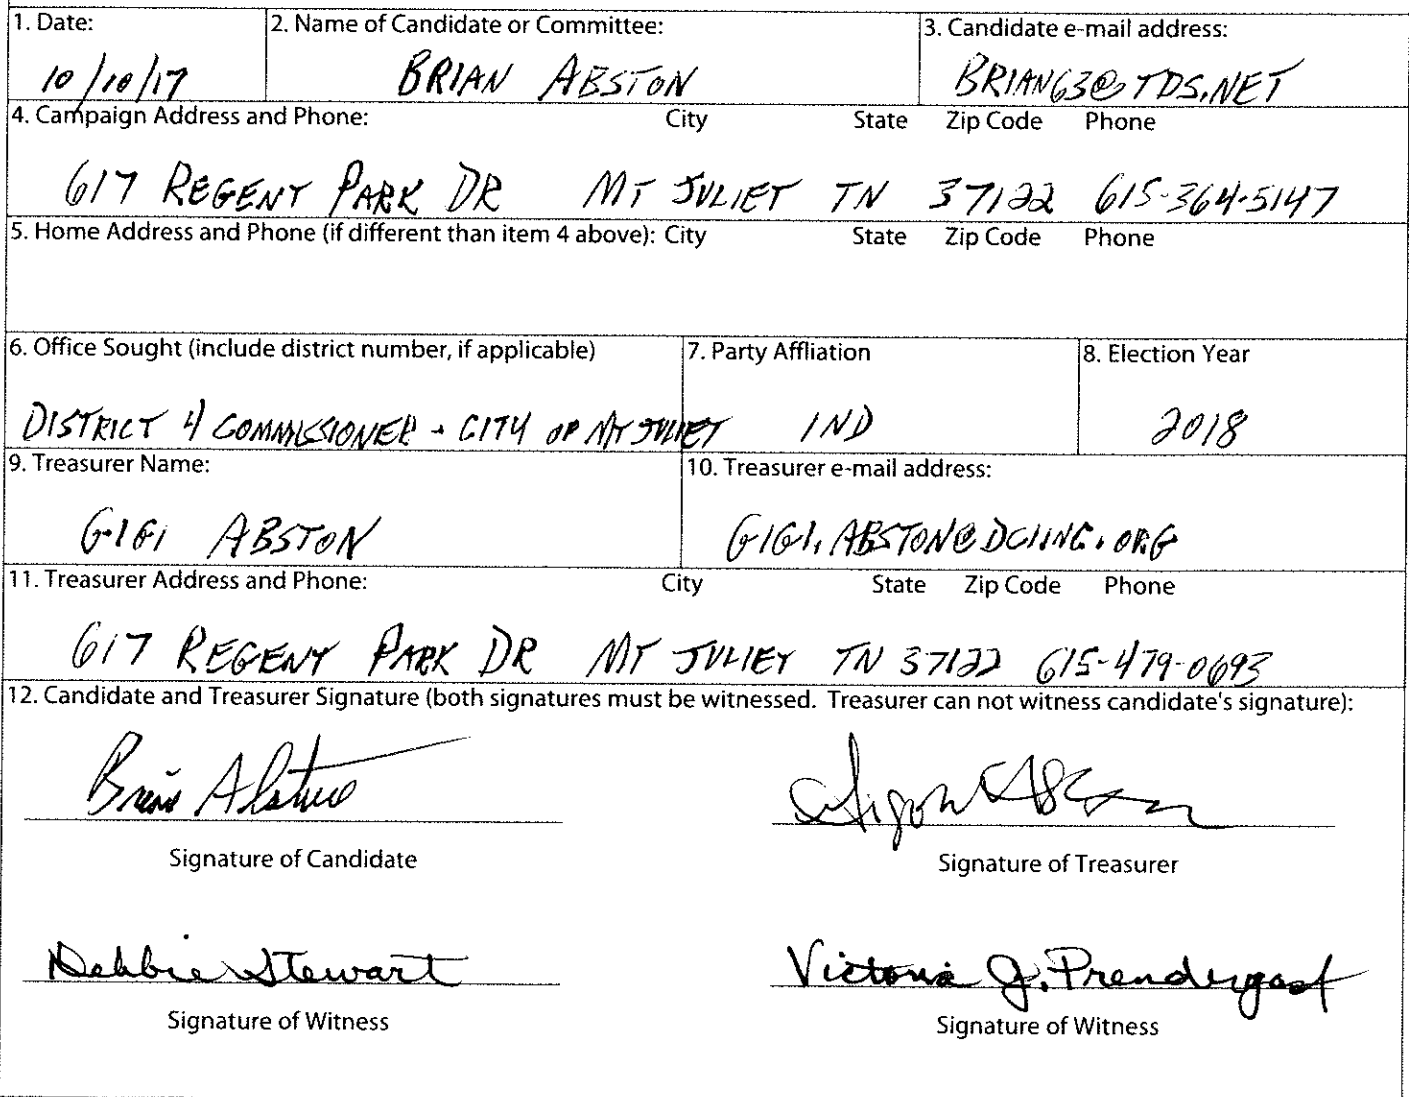 1. Date: 2. Name of Candidate or Committee: 3. Candidate e-mail address:
10/10/17 BRIAN ABSTON BRIAN63@TDS.NET
4. Campaign Address and Phone: City State Zip Code Phone
617 REGENT PARK DR MT JULIET TN 37122 615-364-5147
5. Home Address and Phone (if different than item 4 above): City State Zip Code Phone
6. Office Sought (include district number, if applicable) 7. Party Affliation 8. Election Year
DISTRICT 4 COMMISSIONER - CITY OF MT JULIET IND 2018
9. Treasurer Name: 10. Treasurer e-mail address:
GIGI ABSTON GIGI.ABSTON@DCIING.ORG
11. Treasurer Address and Phone: City State Zip Code Phone
617 REGENT PARK DR MT JULIET TN 37122 615-479-0693
12. Candidate and Treasurer Signature (both signatures must be witnessed. Treasurer can not witness candidate's signature):
Brian Abston
Signature of Candidate Signature of Treasurer
Debbie Stewart Victoria J. Prendergast
Signature of Witness Signature of Witness